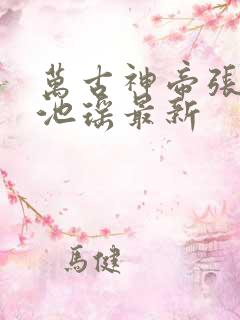 萬古神帝張
池瑤最新
馬健